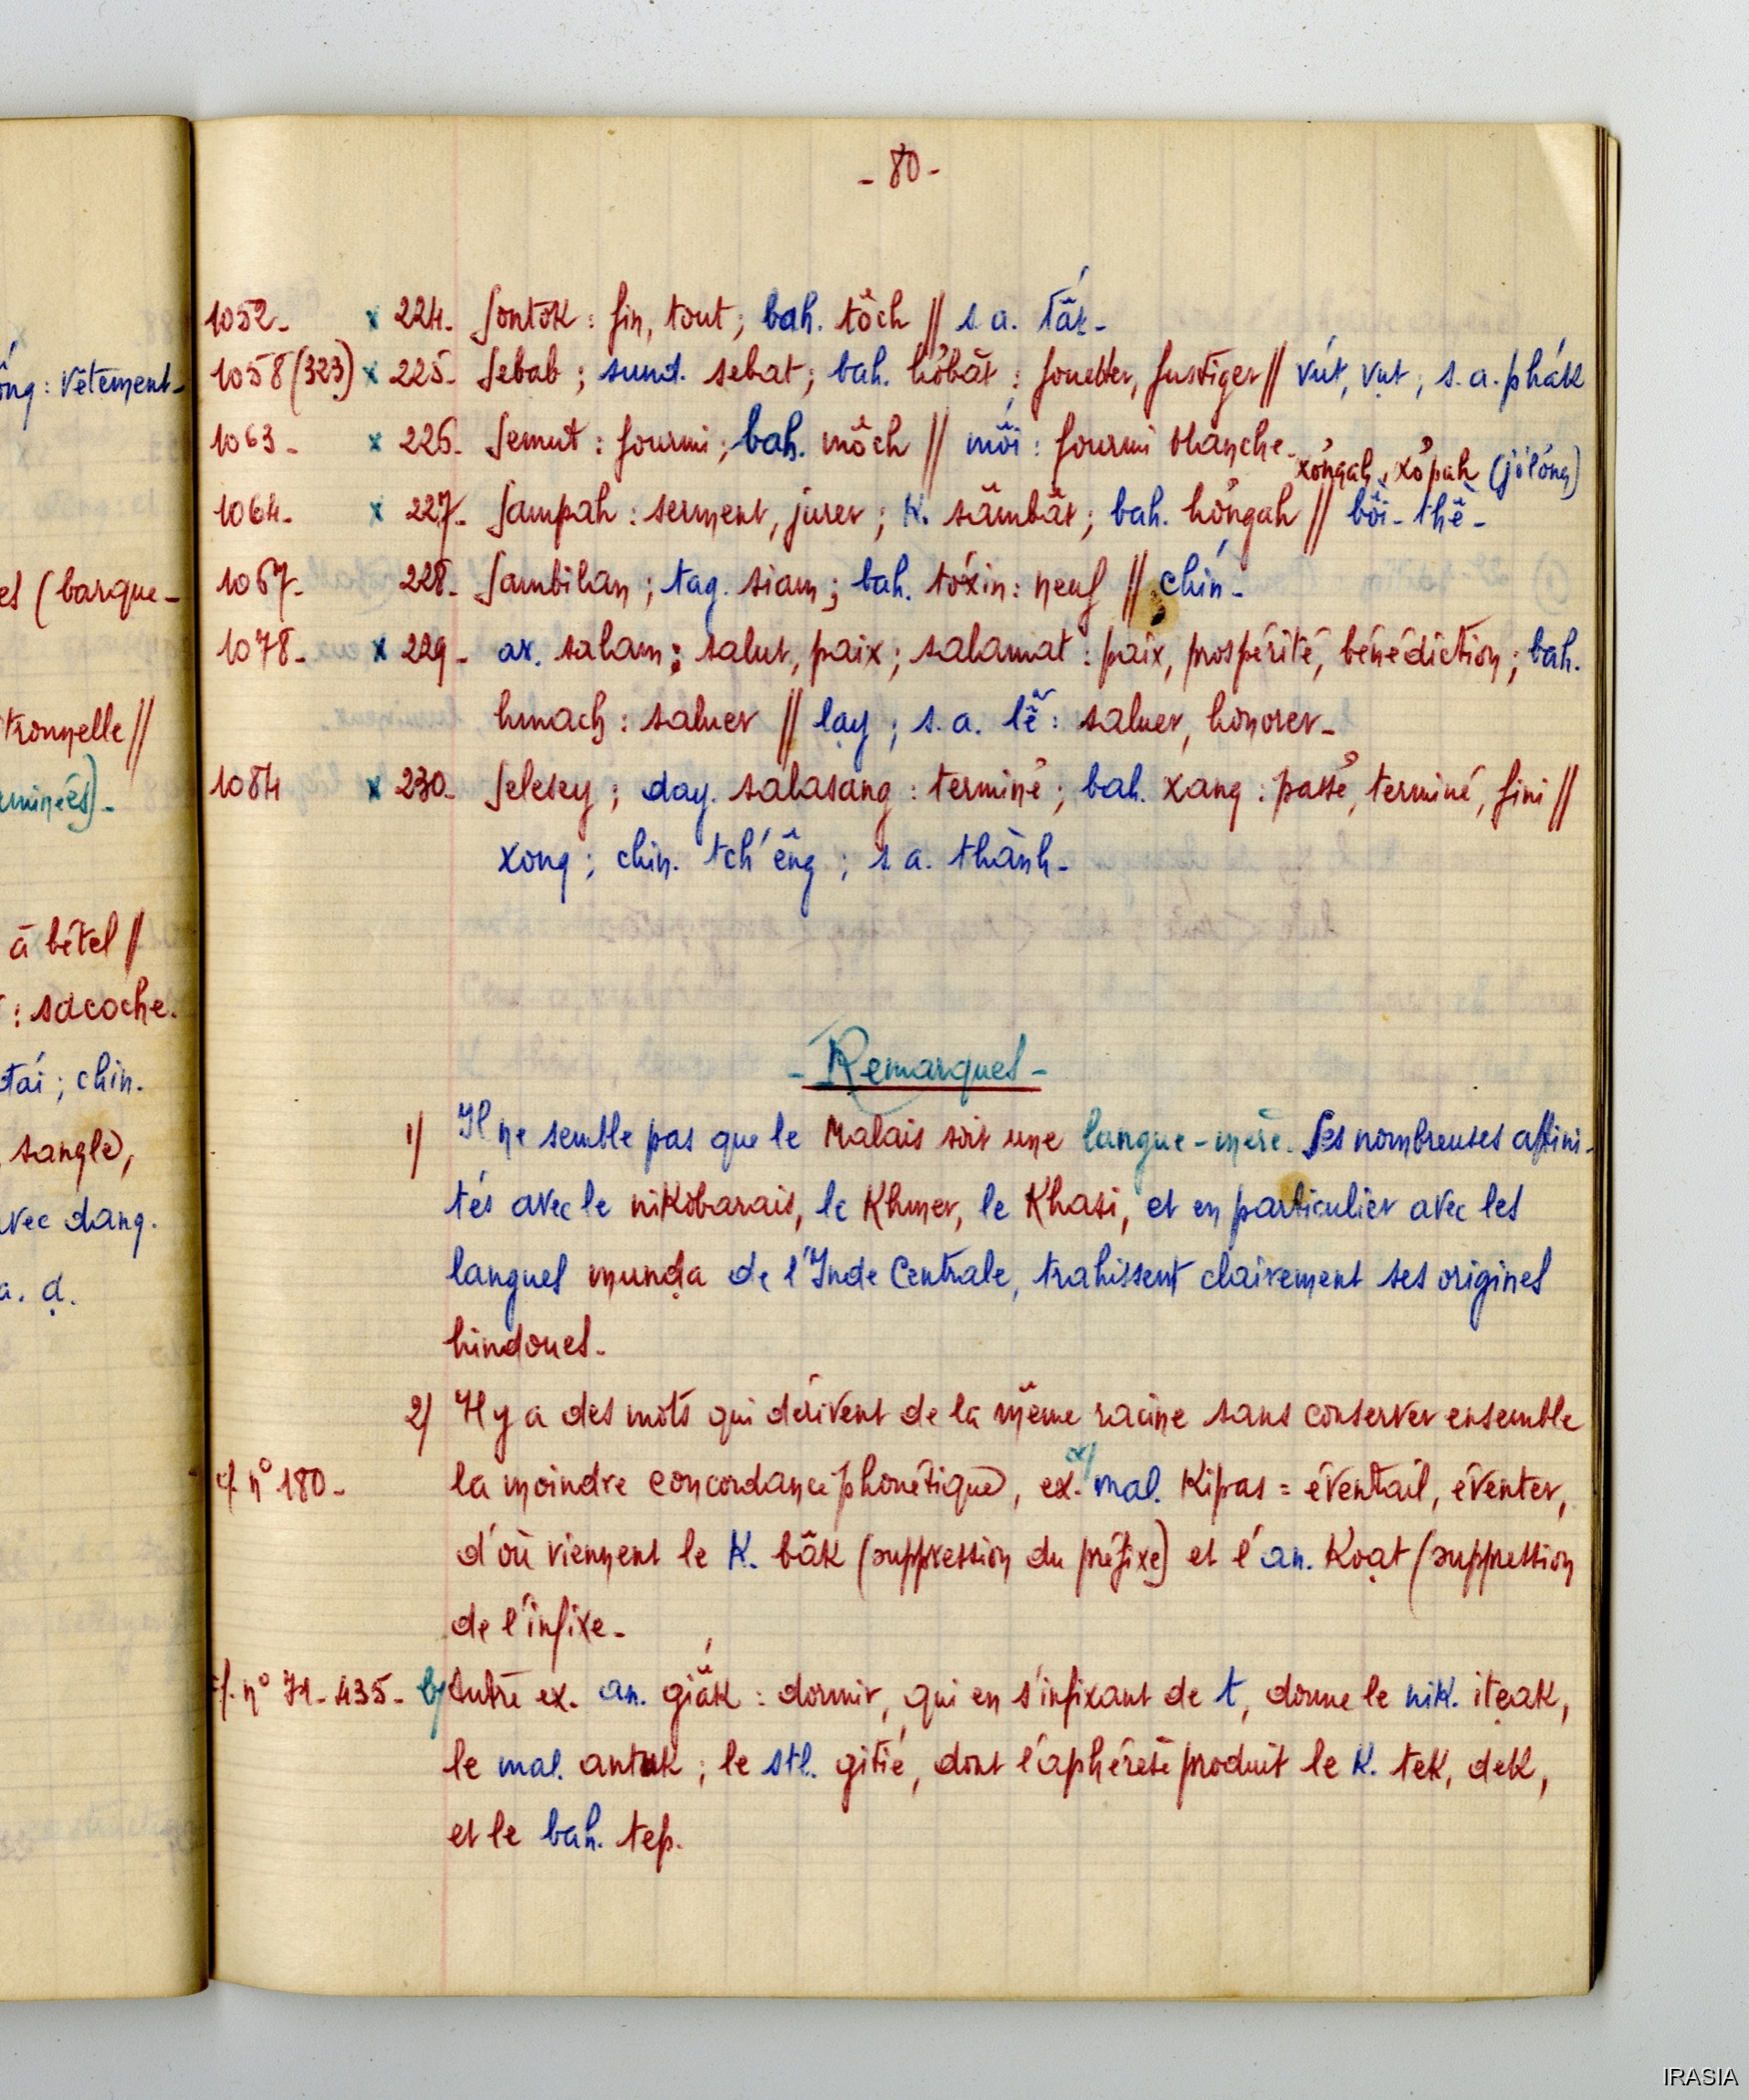 - 80 -
1052- x 224- Sontok : fin, tout ; bah. tŏ́ch // s. a. tất-
ông : vêtement- 1058 (323) x 225- Sebab ; sund. sebat ; bah. hơbăt : fouetter, fustiger // vút, vụt ; s. a. phác
1063- x 226- Semut : fourmi ; bah. mŏch // mối : fourmi blanche-
xơngah, xơpah (jơlơng)
1064- x 227- Sampah : serment, jurer ; K. sâmbăt ; bah. hơngah // bồi-thề-
es (barque- 1067- 228- Sambilan ; tag. siam ; bah. tơxin : neuf // chín-
1078- x 229- ar. salam : salut, paix ; salamat : paix, prospérité, bénédiction ; bah.
tronnelle // hmach : saluer // lạy ; s. a. lễ : saluer, honorer-
uminées)- 1084 x 230- Selesey ; day. salasang : terminé ; bah. xang : passé, terminé, fini //
xong ; chin. tch'êng ; s. a. thành-
à bétel //
: sacoche.
tai ; chin.
- Remarques -
sangle), 1) Il ne semble pas que le Malais soit une langue-mère. Ses nombreuses affini-
avec dang. tés avec le nikobarais, le Khmer, le Khasi, et en particulier avec les
a. ḍ. langues muṇḍa de l'Inde Centrale, trahissent clairement ses origines
hindoues-
2) Il y a des mots qui dérivent de la même racine sans conserver ensemble
cf. n° 180- la moindre concordance phonétique, ex. a) mal. Kipas = éventail, éventer,
d'où viennent le K. băk (suppression du préfixe) et l'an. Koạt (suppression
de l'infixe-
cf. n° 71-435- b) Autre ex. an. giấk : dormir, qui en s'infixant de t, donne le nik. iteak,
le mal. antuk ; le stl. gitié, dont l'aphérèse produit le K. tek, dek,
et le bah. tep.
IRASIA